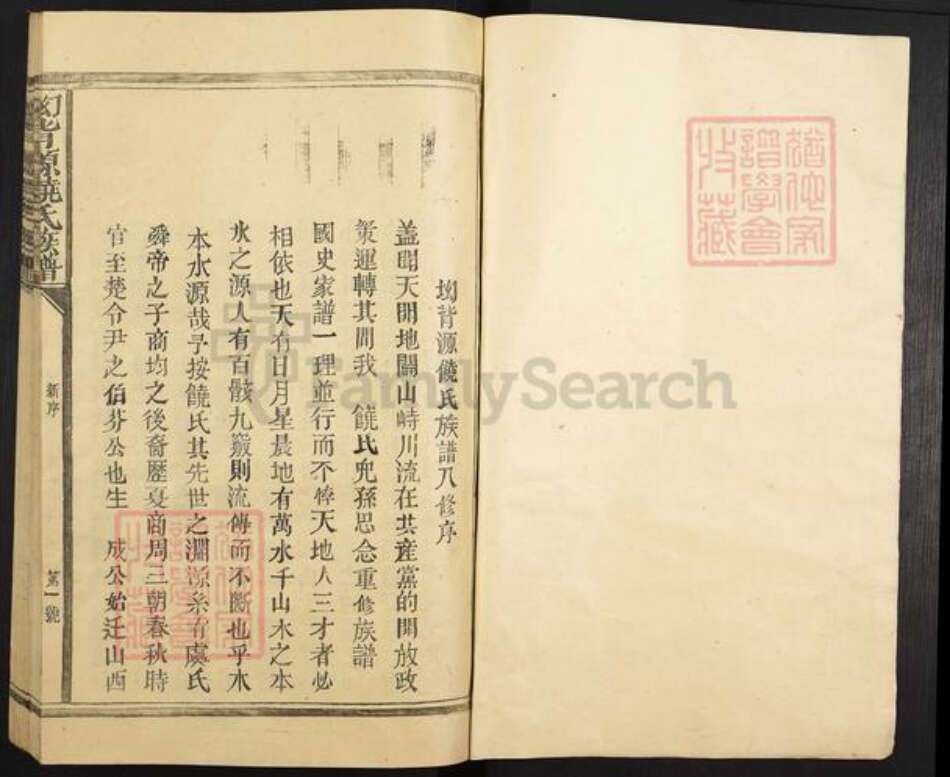 譜學會
收藏
坳背源饒氏族譜八修序
蓋聞天開地闢山峙川流在共產黨的開放政
策運轉其間我 饒氏兒孫思念重修族譜
國史家譜一理並行而不悖天地人三才者必
相依也天有日月星晨地有萬水千山木之本
水之源人有百骸九竅則流傳而不斷也乎木
本水源哉予按饒氏其先世之淵源系有虞氏
舜帝之子商均之後裔歷夏商周三朝春秋時
官至楚令尹之伯芬公也生 成公始迁山西
坳背源饒氏族譜
新序
第一號
FamilySearch